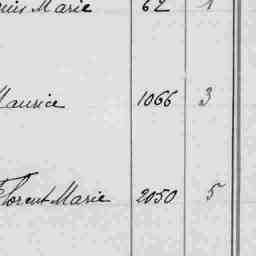 ouis Marie 62 1
Maurice 1066 3
Florent Marie 2050 5